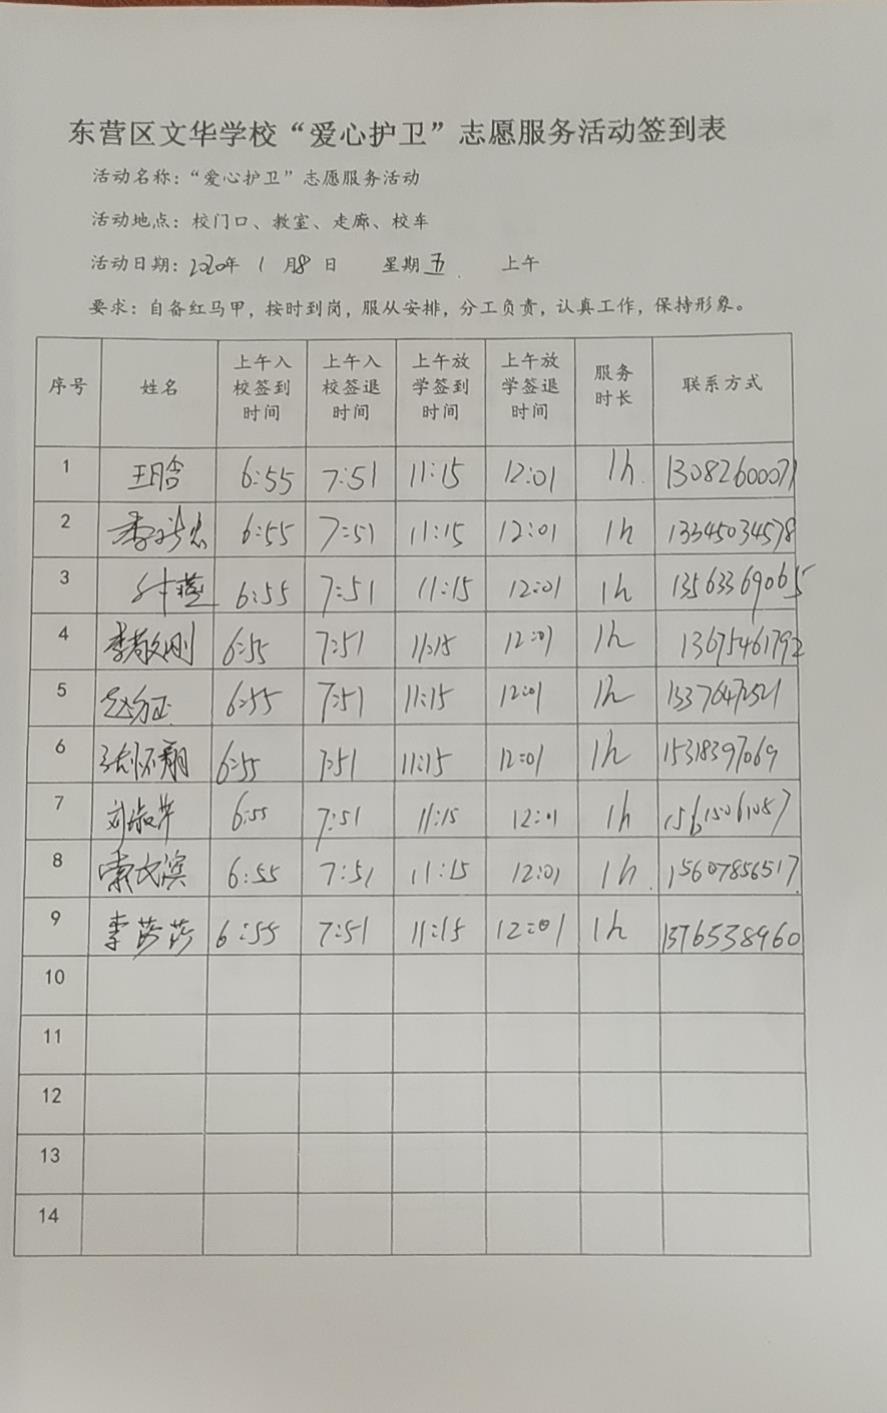 东营区文华学校“爱心护卫”志愿服务活动签到表
活动名称：“爱心护卫”志愿服务活动
活动地点：校门口、教室、走廊、校车
活动日期：2020年 1 月8 日 星期五 上午
要求：自备红马甲，按时到岗，服从安排，分工负责，认真工作，保持形象。
序号 姓名 上午入校签到时间 上午入校签退时间 上午放学签到时间 上午放学签退时间 服务时长 联系方式
1 王晗 6:55 7:51 11:15 12:01 1h 13082600071
2 6:55 7:51 11:15 12:01 1h 13345034578
3 6:55 7:51 11:15 12:01 1h 13563369065
4 李敬刚 6:55 7:51 11:15 12:01 1h 13675461792
5 6:55 7:51 11:15 12:01 1h
6 张怀翔 6:55 7:51 11:15 12:01 1h 15318397069
7 刘淑芹 6:55 7:51 11:15 12:01 1h 15615061057
8 索文滨 6:55 7:51 11:15 12:01 1h 15607856517
9 李莎莎 6:55 7:51 11:15 12:01 1h 1376538960
10
11
12
13
14